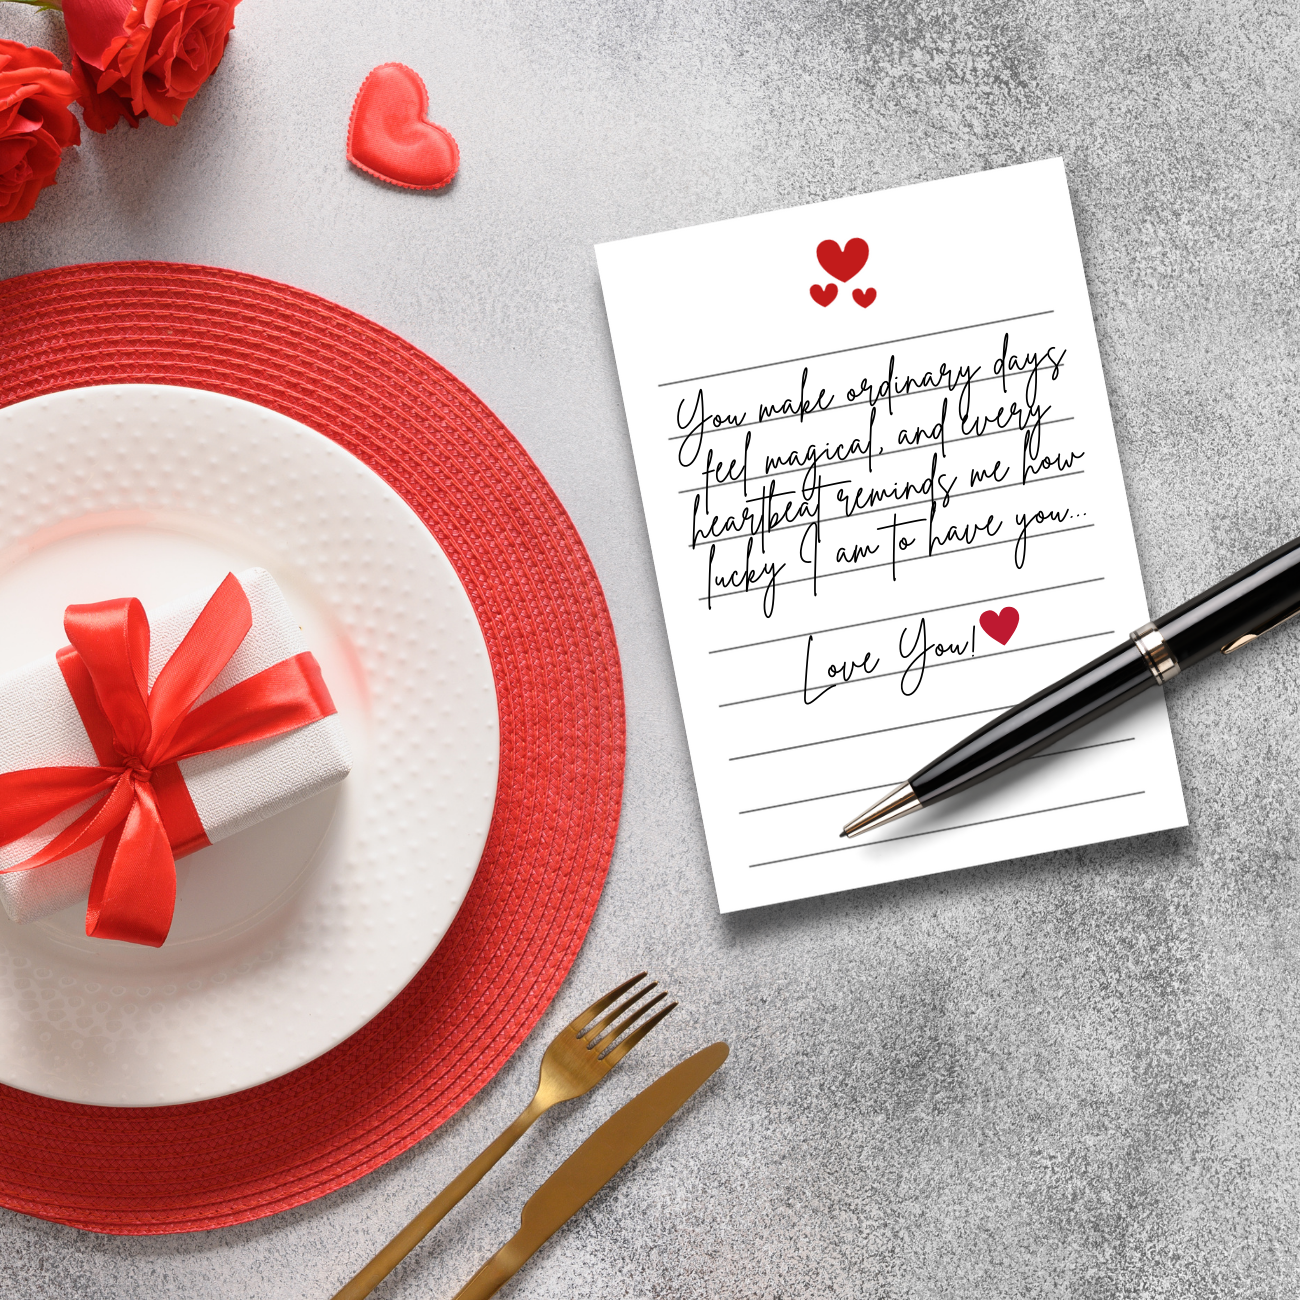 You make ordinary days
feel magical, and every
heartbeat reminds me how
lucky I am to have you...
Love You!❤